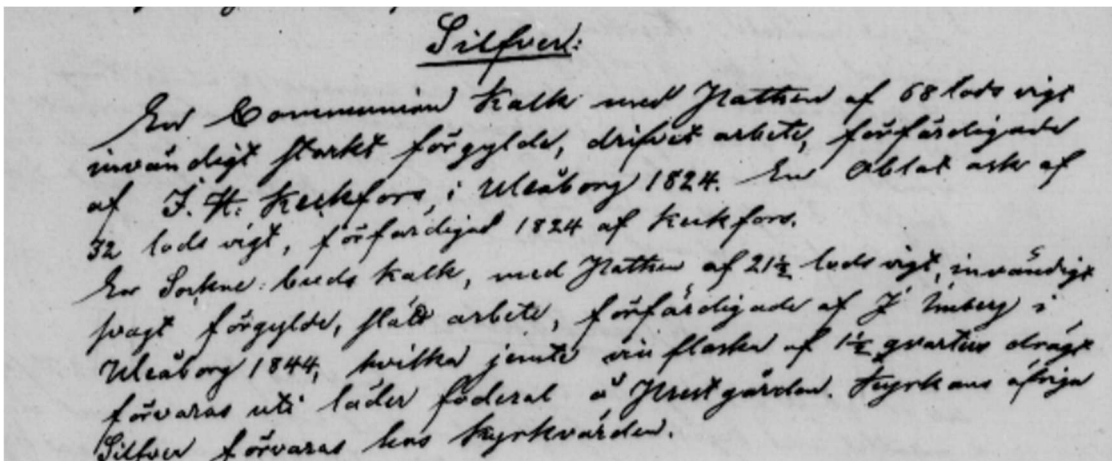 Silfver:
En Communion Kalk med Pathen af 68 lods vigt
invändigt starkt förgylde, drifvet arbete, förfärdigade
af J. H. Keckfors, i Uleåborg 1824. En Oblat ask af
32 lods vigt, förfärdigad 1824 af Keckfors.
En Sockne: buds kalk, med Pathen af 21½ lods vigt, invändigt
svagt förgylde, slätt arbete, förfärdigade af J Imberg i
Uleåborg 1844, hvilka jemte vin flaska af 1½ qvarters drägt
förvaras uti läder foderal å Prestgården. Kyrkans öfriga
Silfver förvaras hos Kyrkvärden.